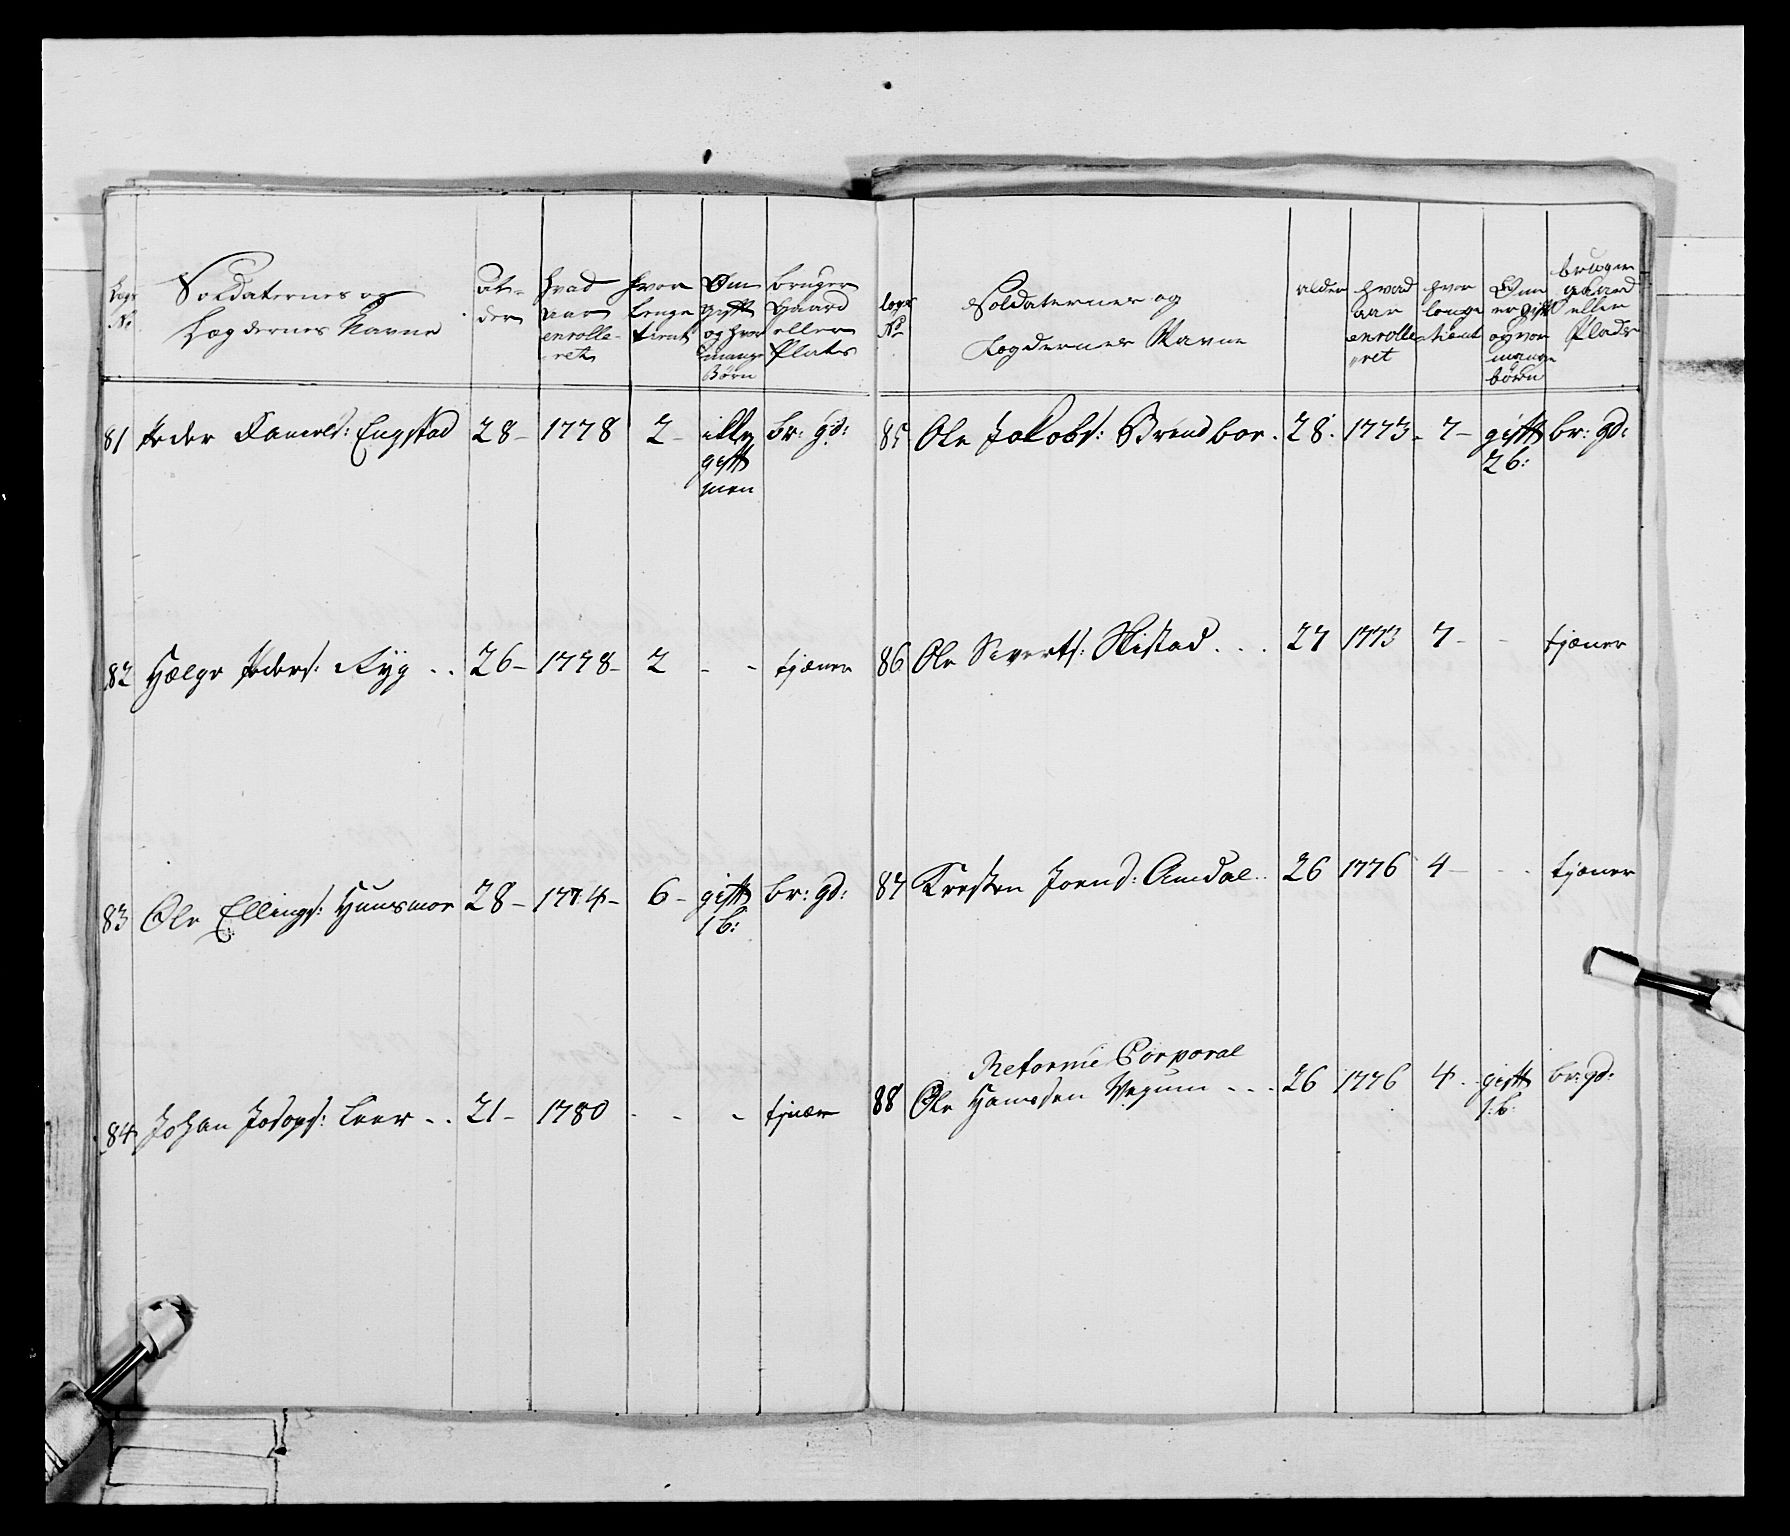 Lægs No Soldaternes og Lægdernes Navne Al- der hvad aar enrolle- ret hvor lenge tient Om gift og hvor mange Børn bruger Gaard eller Plats
81 Peder Engstad 28 - 1778 2 - ikke gift men br: gd:
82 Helge Peders: Ryg . . 26 - 1778 - 2 - - tjæner
83 Ole Ellings: Huusmoe 28 - 1774 - 6 - gift 1 b: br: gd:
84 Johan Joseps: Leer . . 21 - 1780 - - - tjæner
lægs No Soldaternes og Lægdernes Navne alder hvad aar enrolle ret hvor lenge tient Om er gift og hvor mange børn bruger gaard eller Plads
85 Ole Jakobs: . 28 . 1773 . 7 - gift 2 b: br: gd:
86 Ole Siverts: . . . 27 1773 7 - - tjæner
87 Kresten Joens: Amdal . . 26 1776 4 - - - tjæner
Reformé Corporal
88 Ole Hansen Vegum . . . 26 1776 4 . gift 1 b: br: gd: